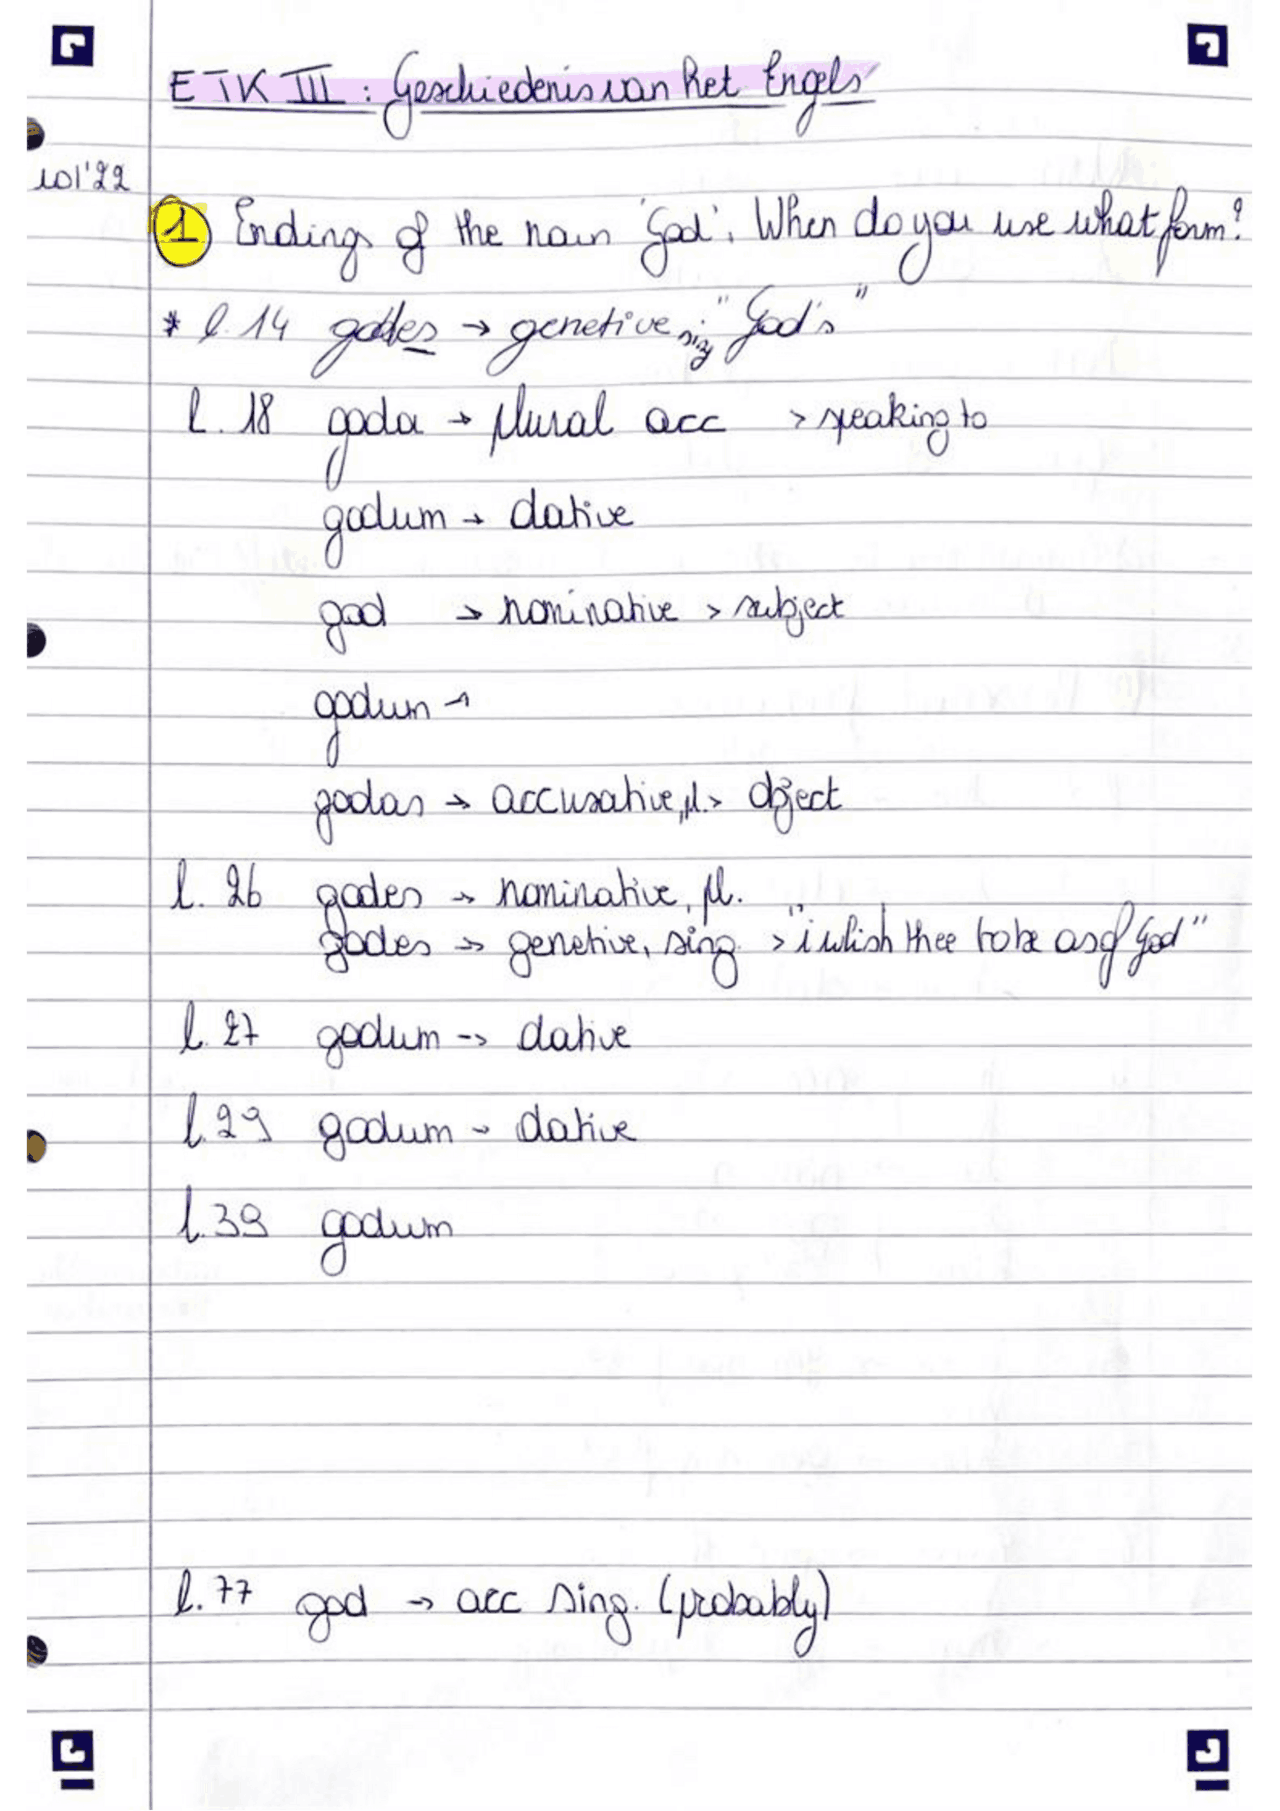 ETK III : Geschiedenis van het Engels
10/'22
1 Endings of the noun 'God'. When do you use what form?
* l. 14 godes → genetive sing "God's"
l. 18 goda → plural acc > speaking to
godum → dative
god → nominative > subject
godum →
godas → accusative, pl. > object
l. 26 godes → nominative, pl.
godes → genetive, sing. > "i wish thee to be as of God"
l. 27 godum --> dative
l. 29 godum - dative
l. 39 godum
l. 77 god → acc sing. (probably)